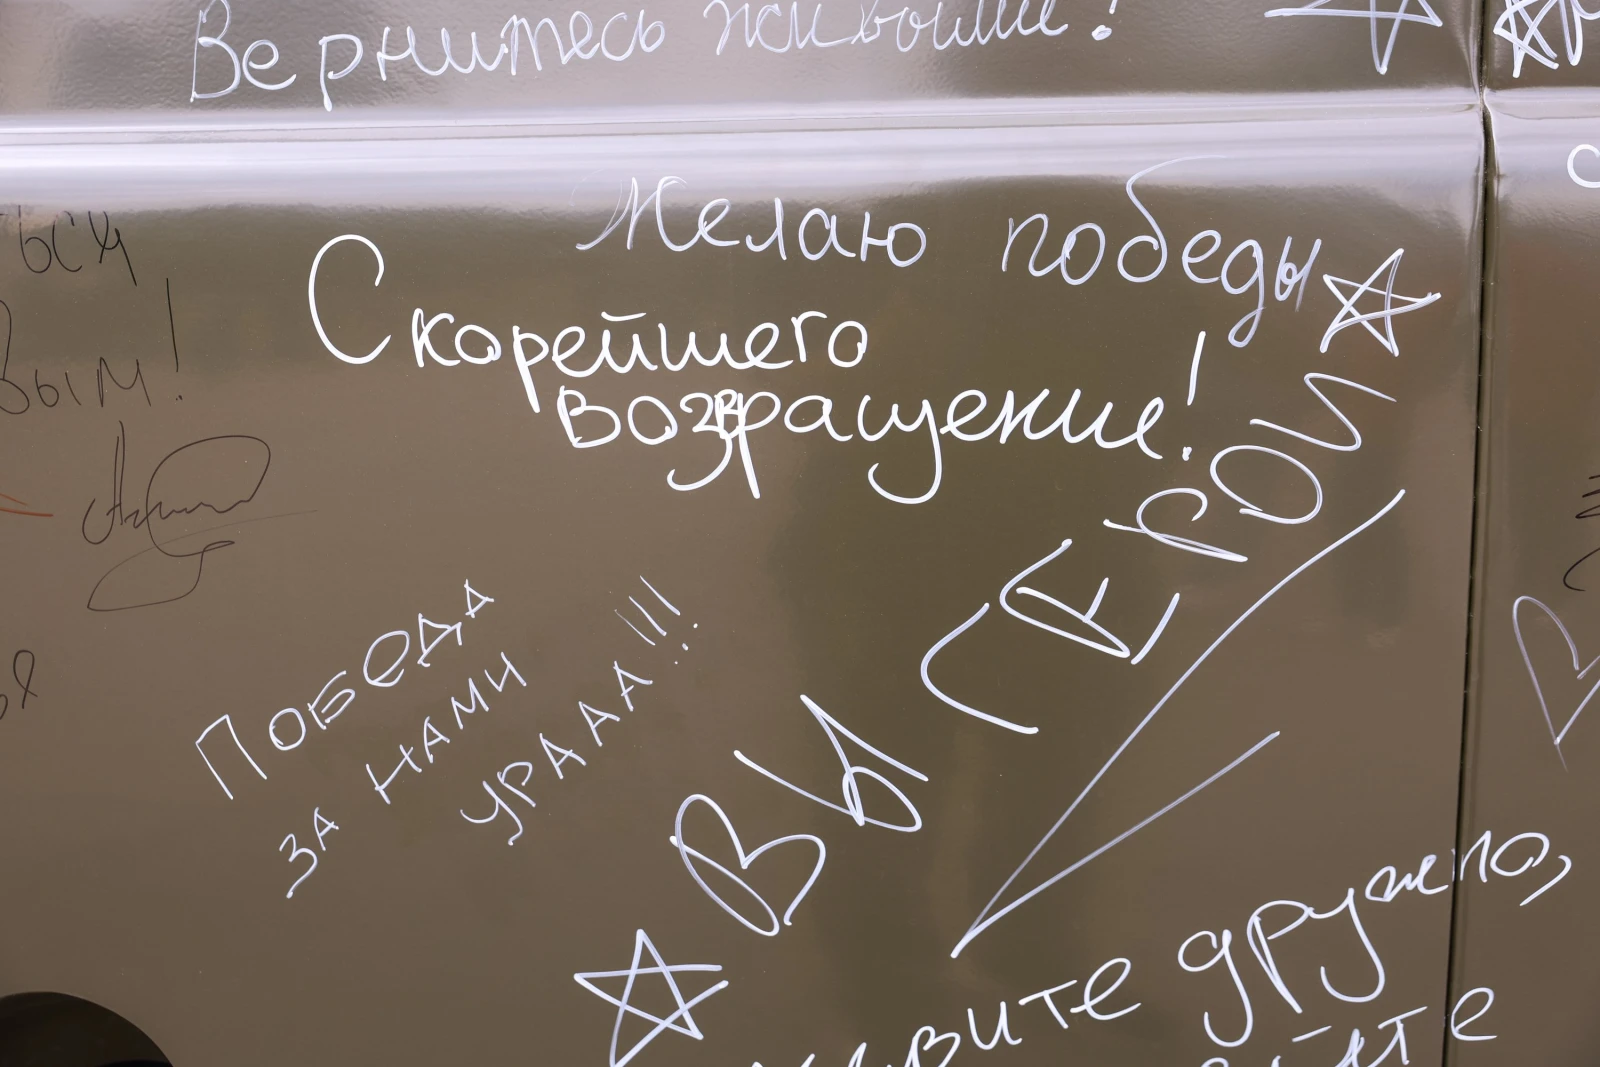 Вернитесь живыми!
Желаю победы
Скорейшего
возвращение!
вым!
ПОБЕДА
ЗА НАМИ
УРААА!!!
ВЫ ГЕРОИ
живите дружно,